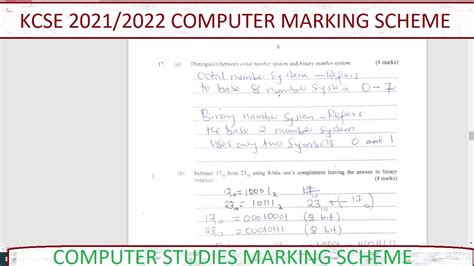 KCSE 2021/2022 COMPUTER MARKING SCHEME
8
17. (a) Distinguish between octal number system and binary number system. (4 marks)
Octal number System - Refers
to base 8 number System 0-7
Binary number System - Refers
the base 2 number System
Uses only two Symbols 0 and 1
(b) Subtract 17₁₀ from 23₁₀ using 8-bits one's complement leaving the answer in binary
notation. (4 marks)
17₁₀ = 10001₂ 17₁₀
23₁₀ = 10111₂ 23₁₀ + (-17₁₀)
17₁₀ = 00010001 (8 bit)
23₁₀ = 00010111 (8 bit)
COMPUTER STUDIES MARKING SCHEME